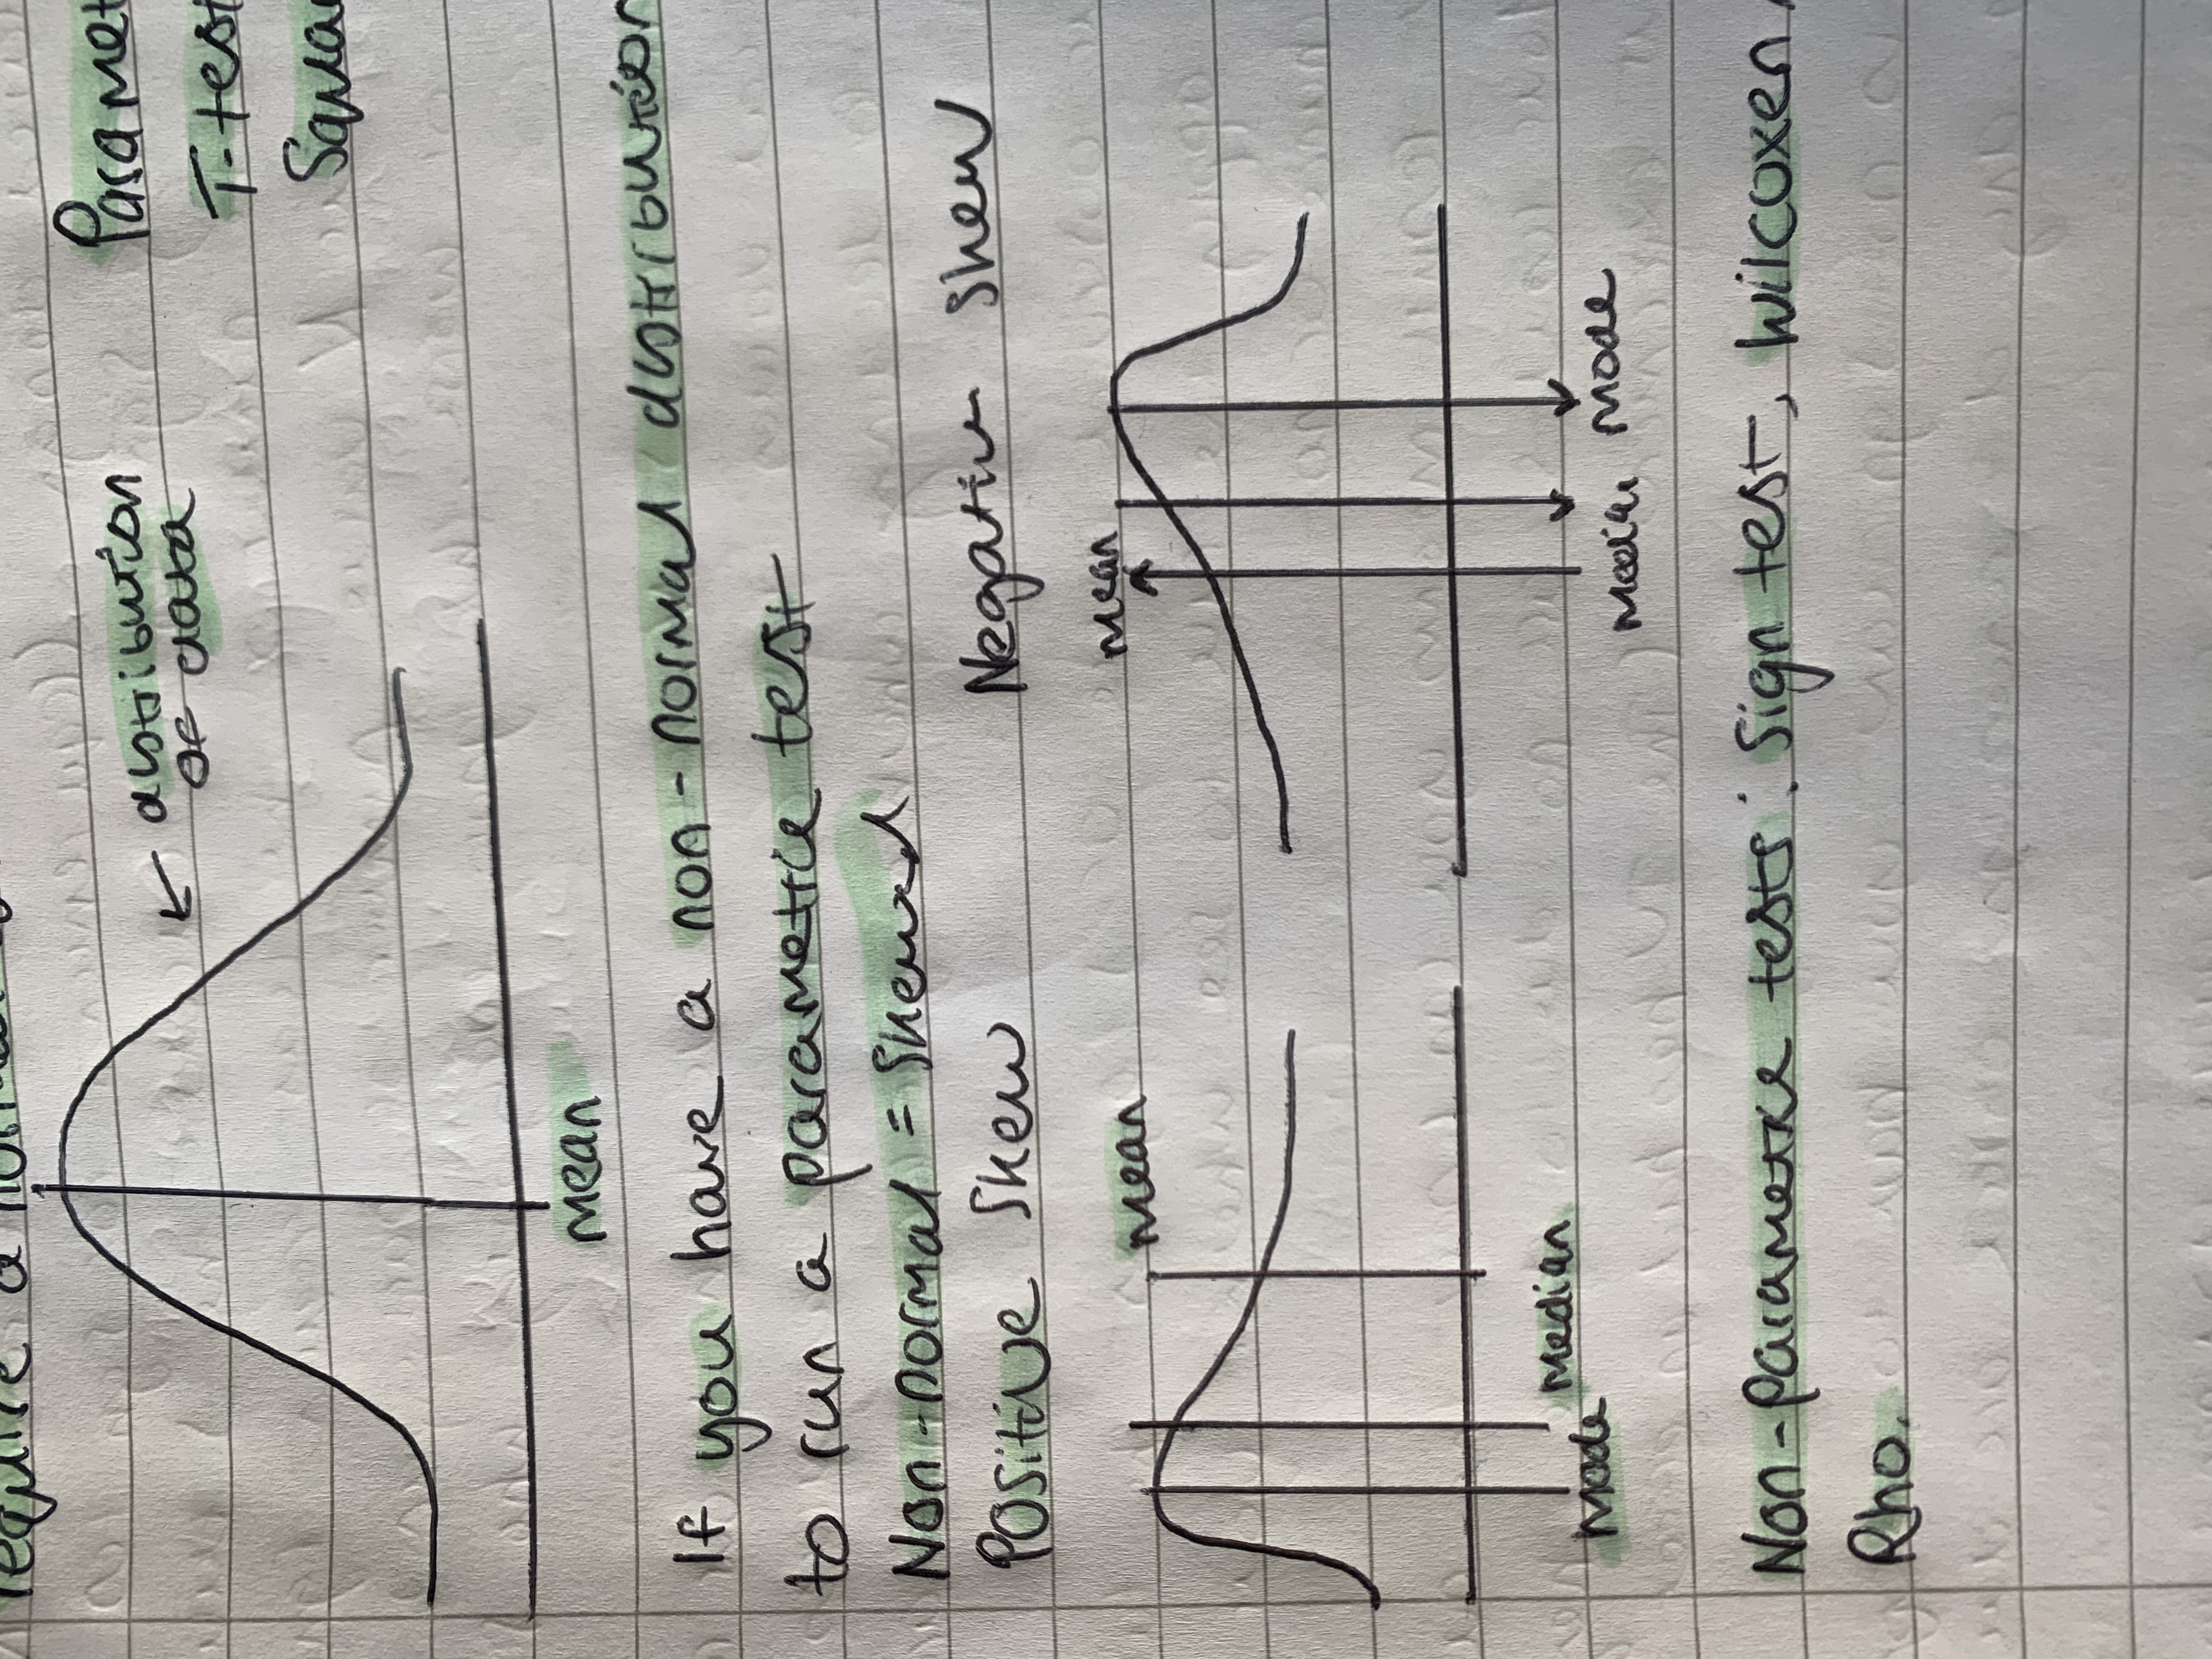 require a normal
Paramet
← distribution
of data
T-test
Squa
mean
If you have a non-normal distribution
to run a parametric test
Non-normal = Skewed
Positive Skew Negative Skew
mean mean
Mode Median Median Mode
Non-parametric tests: Sign test, Wilcoxen,
Rho.